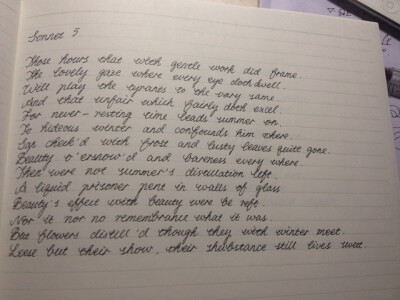 Sonnet 5.
Those hours that with gentle work did frame.
The lovely gaze where every eye doth dwell.
Will play the tyrants to the very same.
And that unfair which fairly doth excel.
For never-resting time leads summer on.
To hideous winter and confounds him there.
Sap check'd with frost and lusty leaves quite gone.
Beauty o'ersnow'd and bareness every where.
Then were not summer's distillation left,
A liquid prisoner pent in walls of glass
Beauty's effect with beauty were bereft.
Nor it nor no remembrance what it was.
But flowers distill'd though they with winter meet.
Leese but their show, their shubstance still lives sweet.